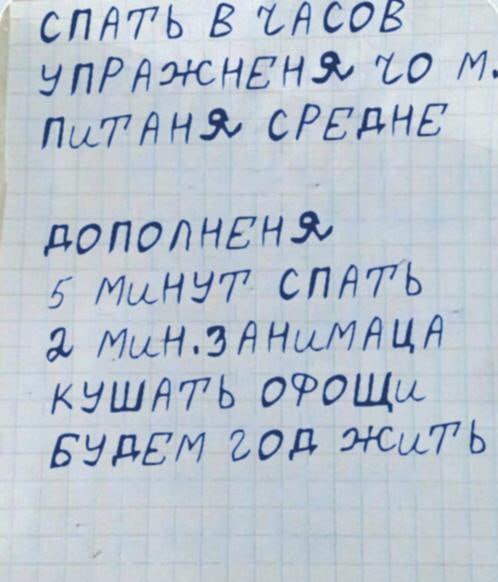 СПАТЬ В ЧАСОВ
УПРАЖНЕНЯ ЧО М.
ПИТАНЯ СРЕДНЕ
ДОПОЛНЕНЯ
5 МИНУТ СПАТЬ
2 МИН. ЗАНИМАЦА
КУШАТЬ ОФОЩИ
БУДЕМ ГОД ЖИТЬ